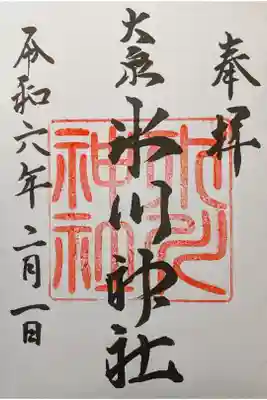 奉拝
氷川神社
令和六年二月一日
氷川
神社